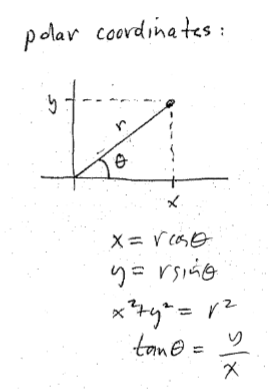 polar coordinates:
y
r
θ
x
x = r cos θ
y = r sin θ
x² + y² = r²
tan θ = y/x